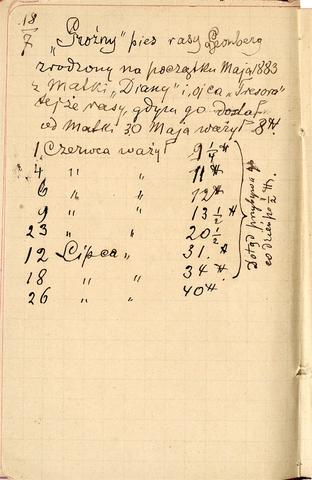 18/7 „Groźny” pies rasy Leonberg
zrodzony na początku Maja 1883
z matki „Diany” i ojca „Tresora”
tejże rasy, gdym go dostał
od matki 30 Maja ważył 8 ℔.
1 Czerwca ważył 9 1/4 ℔
4 „ „ 11 ℔
6 „ „ 12 ℔
9 „ „ 13 1/2 ℔
23 „ „ 20 1/2
12 Lipca „ 31. ℔
18 „ „ 34 ℔
26 „ „ 40 ℔
co dzień